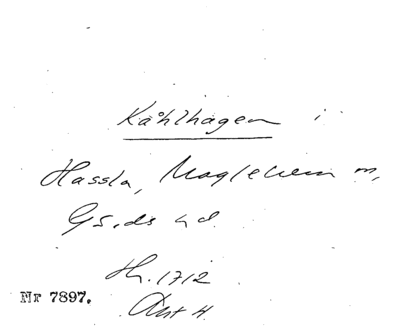 Kåhlhagen i
Hassla, Maglehem m,
Gs. ds hd
Hr. 1712
Akt H.
Nr 7897.